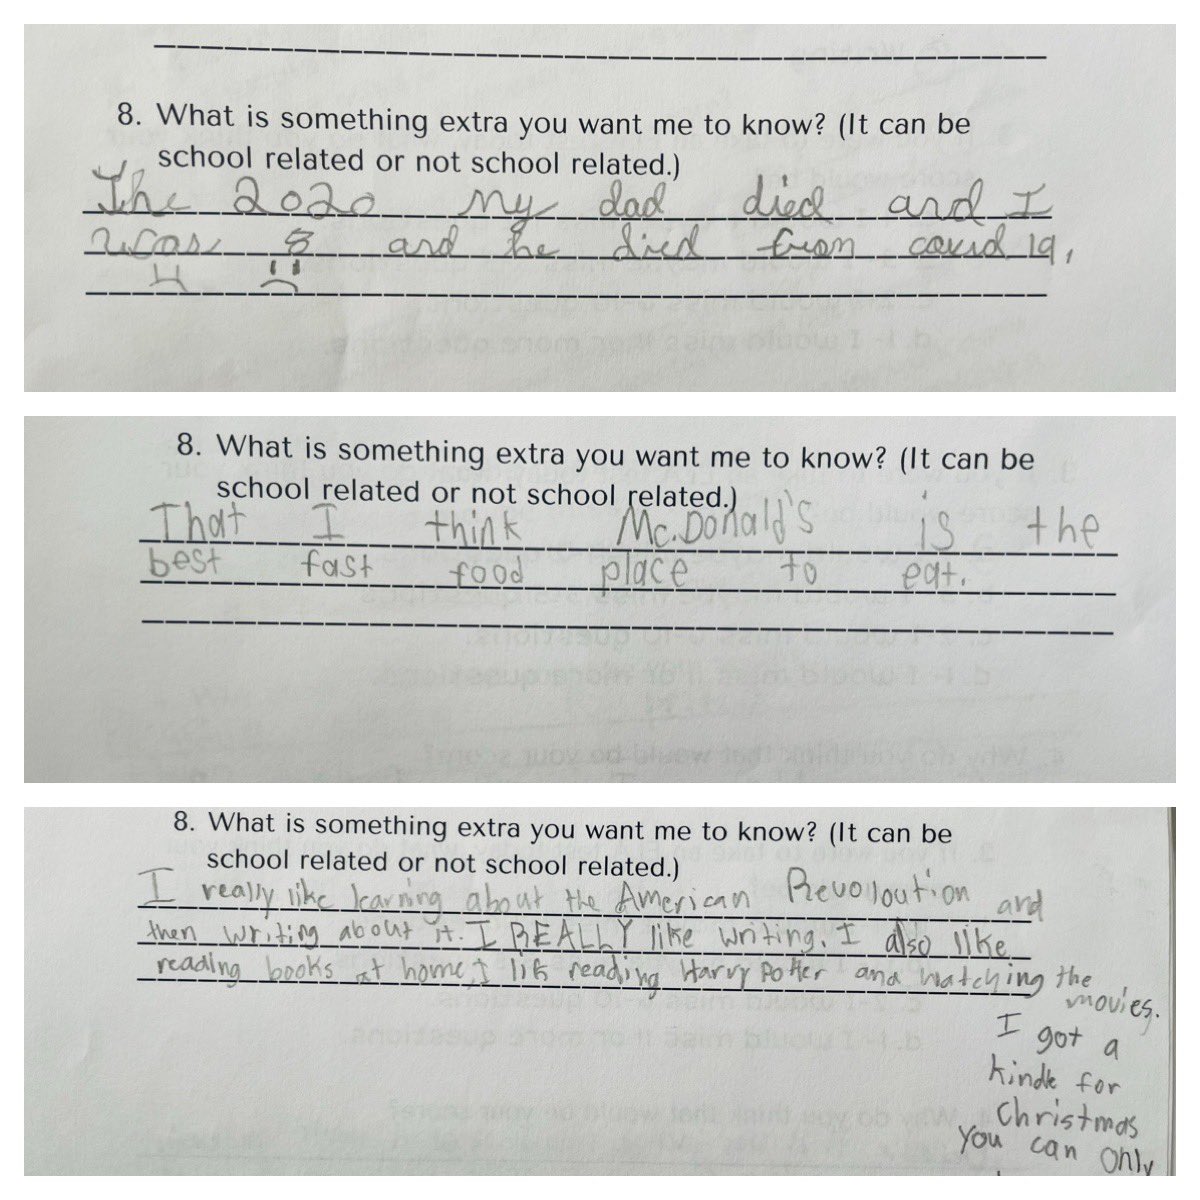 8. What is something extra you want me to know? (It can be
school related or not school related.)
The 2020 my dad died and I
was 8 and he died from covid 19,
8. What is something extra you want me to know? (It can be
school related or not school related.)
That I think Mc.Donald's is the
best fast food place to eat.
8. What is something extra you want me to know? (It can be
school related or not school related.)
I really like learning about the American Revoloution and
then writing about it. I REALLY like writing. I also like
reading books at home, I lik reading Harry Potter and watching the
movies.
I got a
kindle for
Christmas
You can only